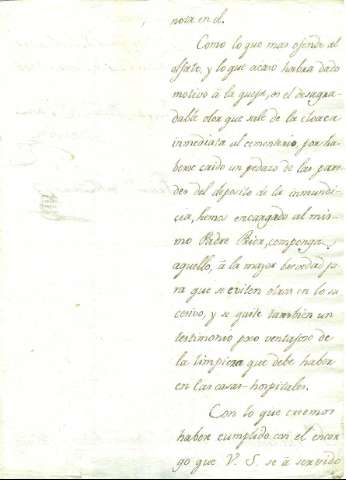 nota en el.
Como lo que mas ofende al
olfato, y lo que acaso habra dado
motivo á la queja, es el desagra-
dable olor que sale de la cloaca
inmediata al cementerio, por ha-
berse caido un pedazo de las pare-
des del deposito de la inmundi-
cia, hemos encargado al mis-
mo Padre Prior, componga
aquello, á la mayor brevedad pa-
ra que se eviten olores en lo su-
cesivo, y se quite tambien un
testimonio poco ventajoso de
la limpieza que debe haber
en las casas-hospitales.
Con lo que creemos
haber cumplido con el encar-
go que V. S. se á servido